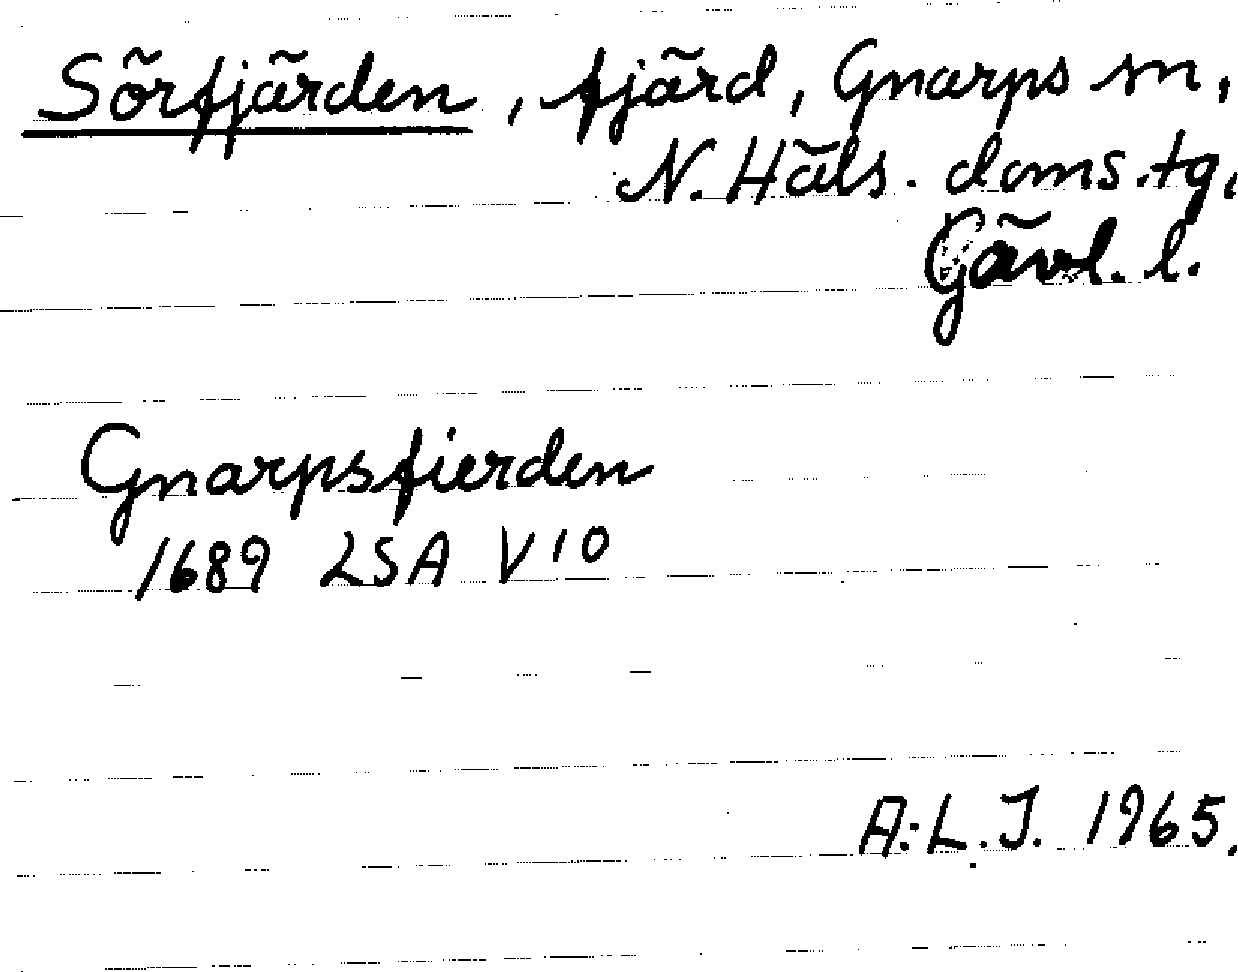 Sörfjärden, fjärd, Gnarps sn,
N. Häls. doms.tg,
Gävl. l.
Gnarpsfierden
1689 LSA V10
A.L.J. 1965.